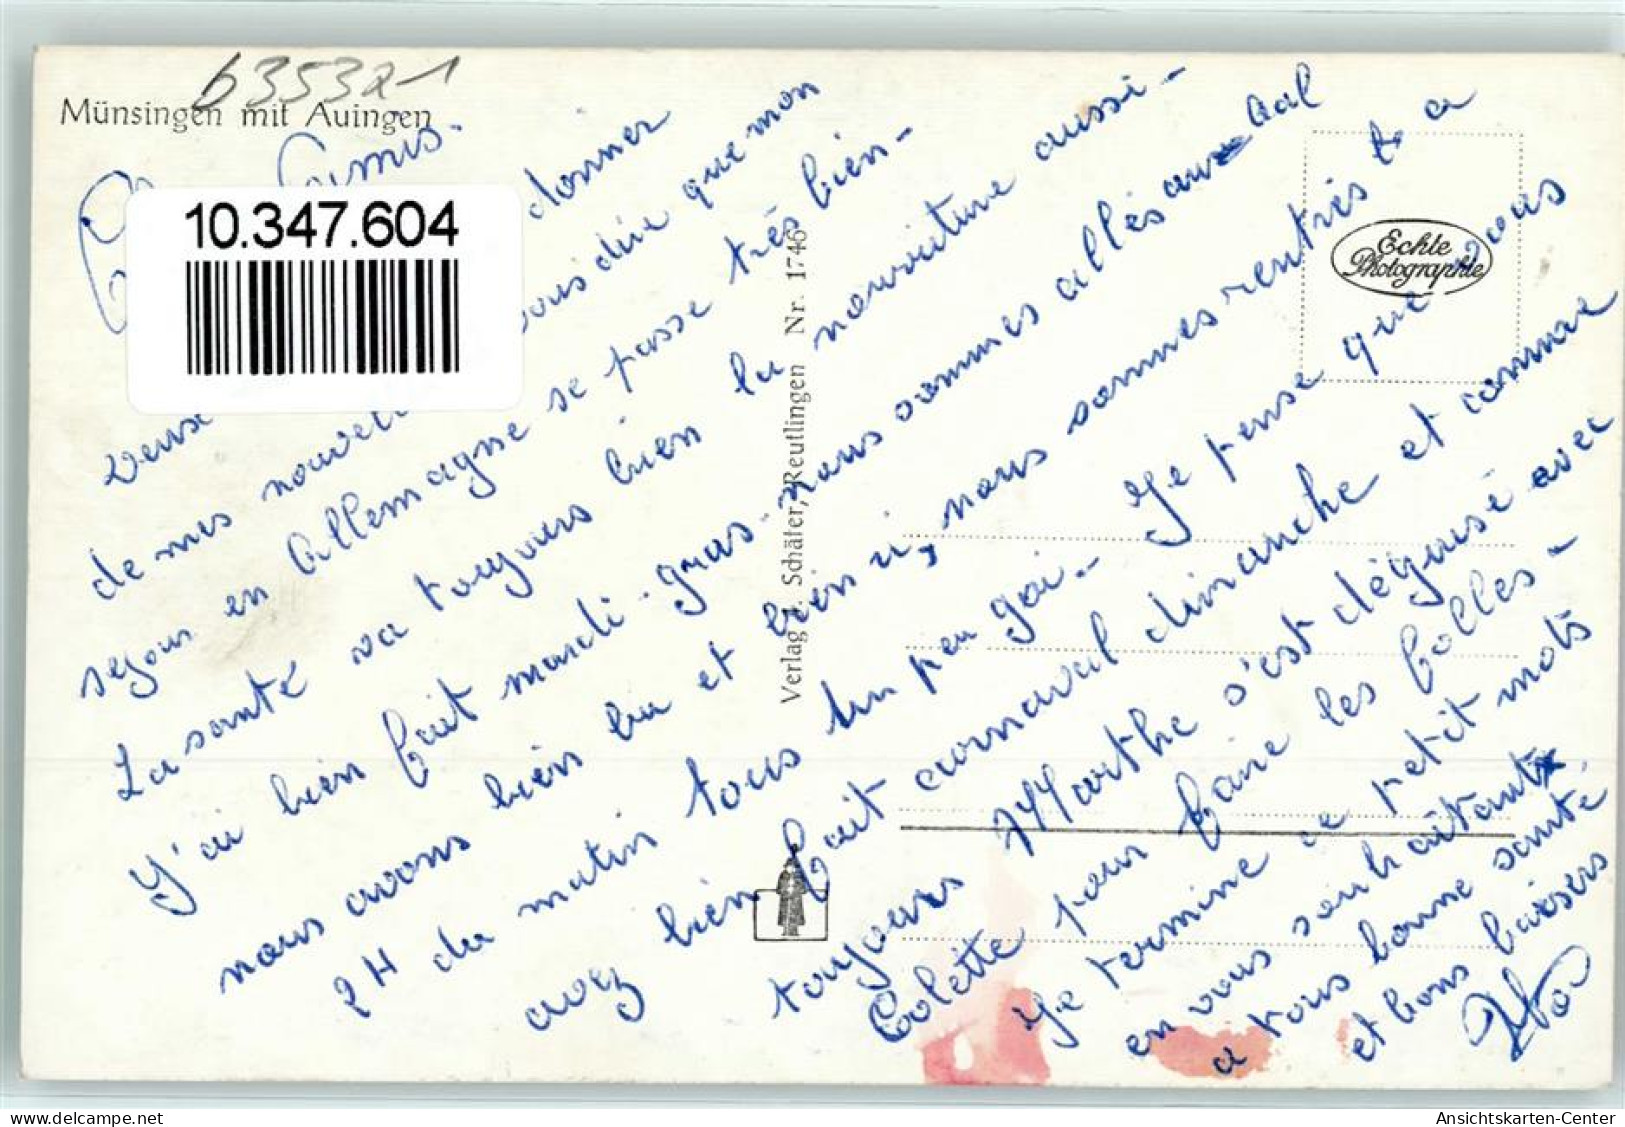 63532-1
Münsingen mit Auingen
Amis.
10.347.604
donner
de mes vous dire que mon
sejour en Allemagne se passe très bien-
La santé va toujours bien la nourriture aussi-
J'ai bien fait mardi-gras. nous sommes allés au bal
nous avons bien bu et bien ri, nous sommes rentrés à
2H du matin tous un peu gai.- Je pense que vous
avez bien fait carnaval dimanche et comme
toujours Marthe s'est déguisé avec
Colette pour faire les folles-
Je termine ce petit mots
en vous souhaitant
a tous bonne santé.
et bons baisers
Verlag Schäfer, Reutlingen Nr. 1746
Echte
Photographie
Ansichtskarten-Center